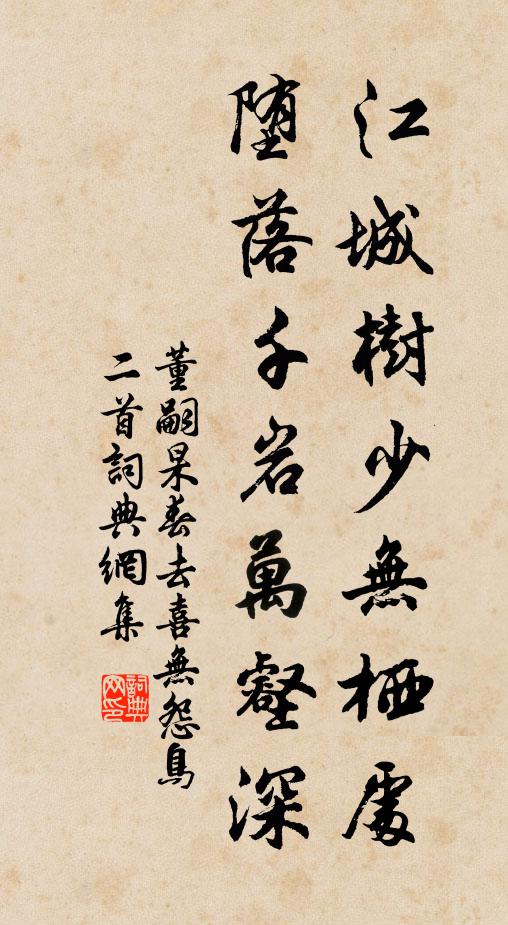 江城樹少無栖處
堕落千岩萬壑深
董嗣杲春去喜無怨鳥
二首詞典網集
詞典
网印